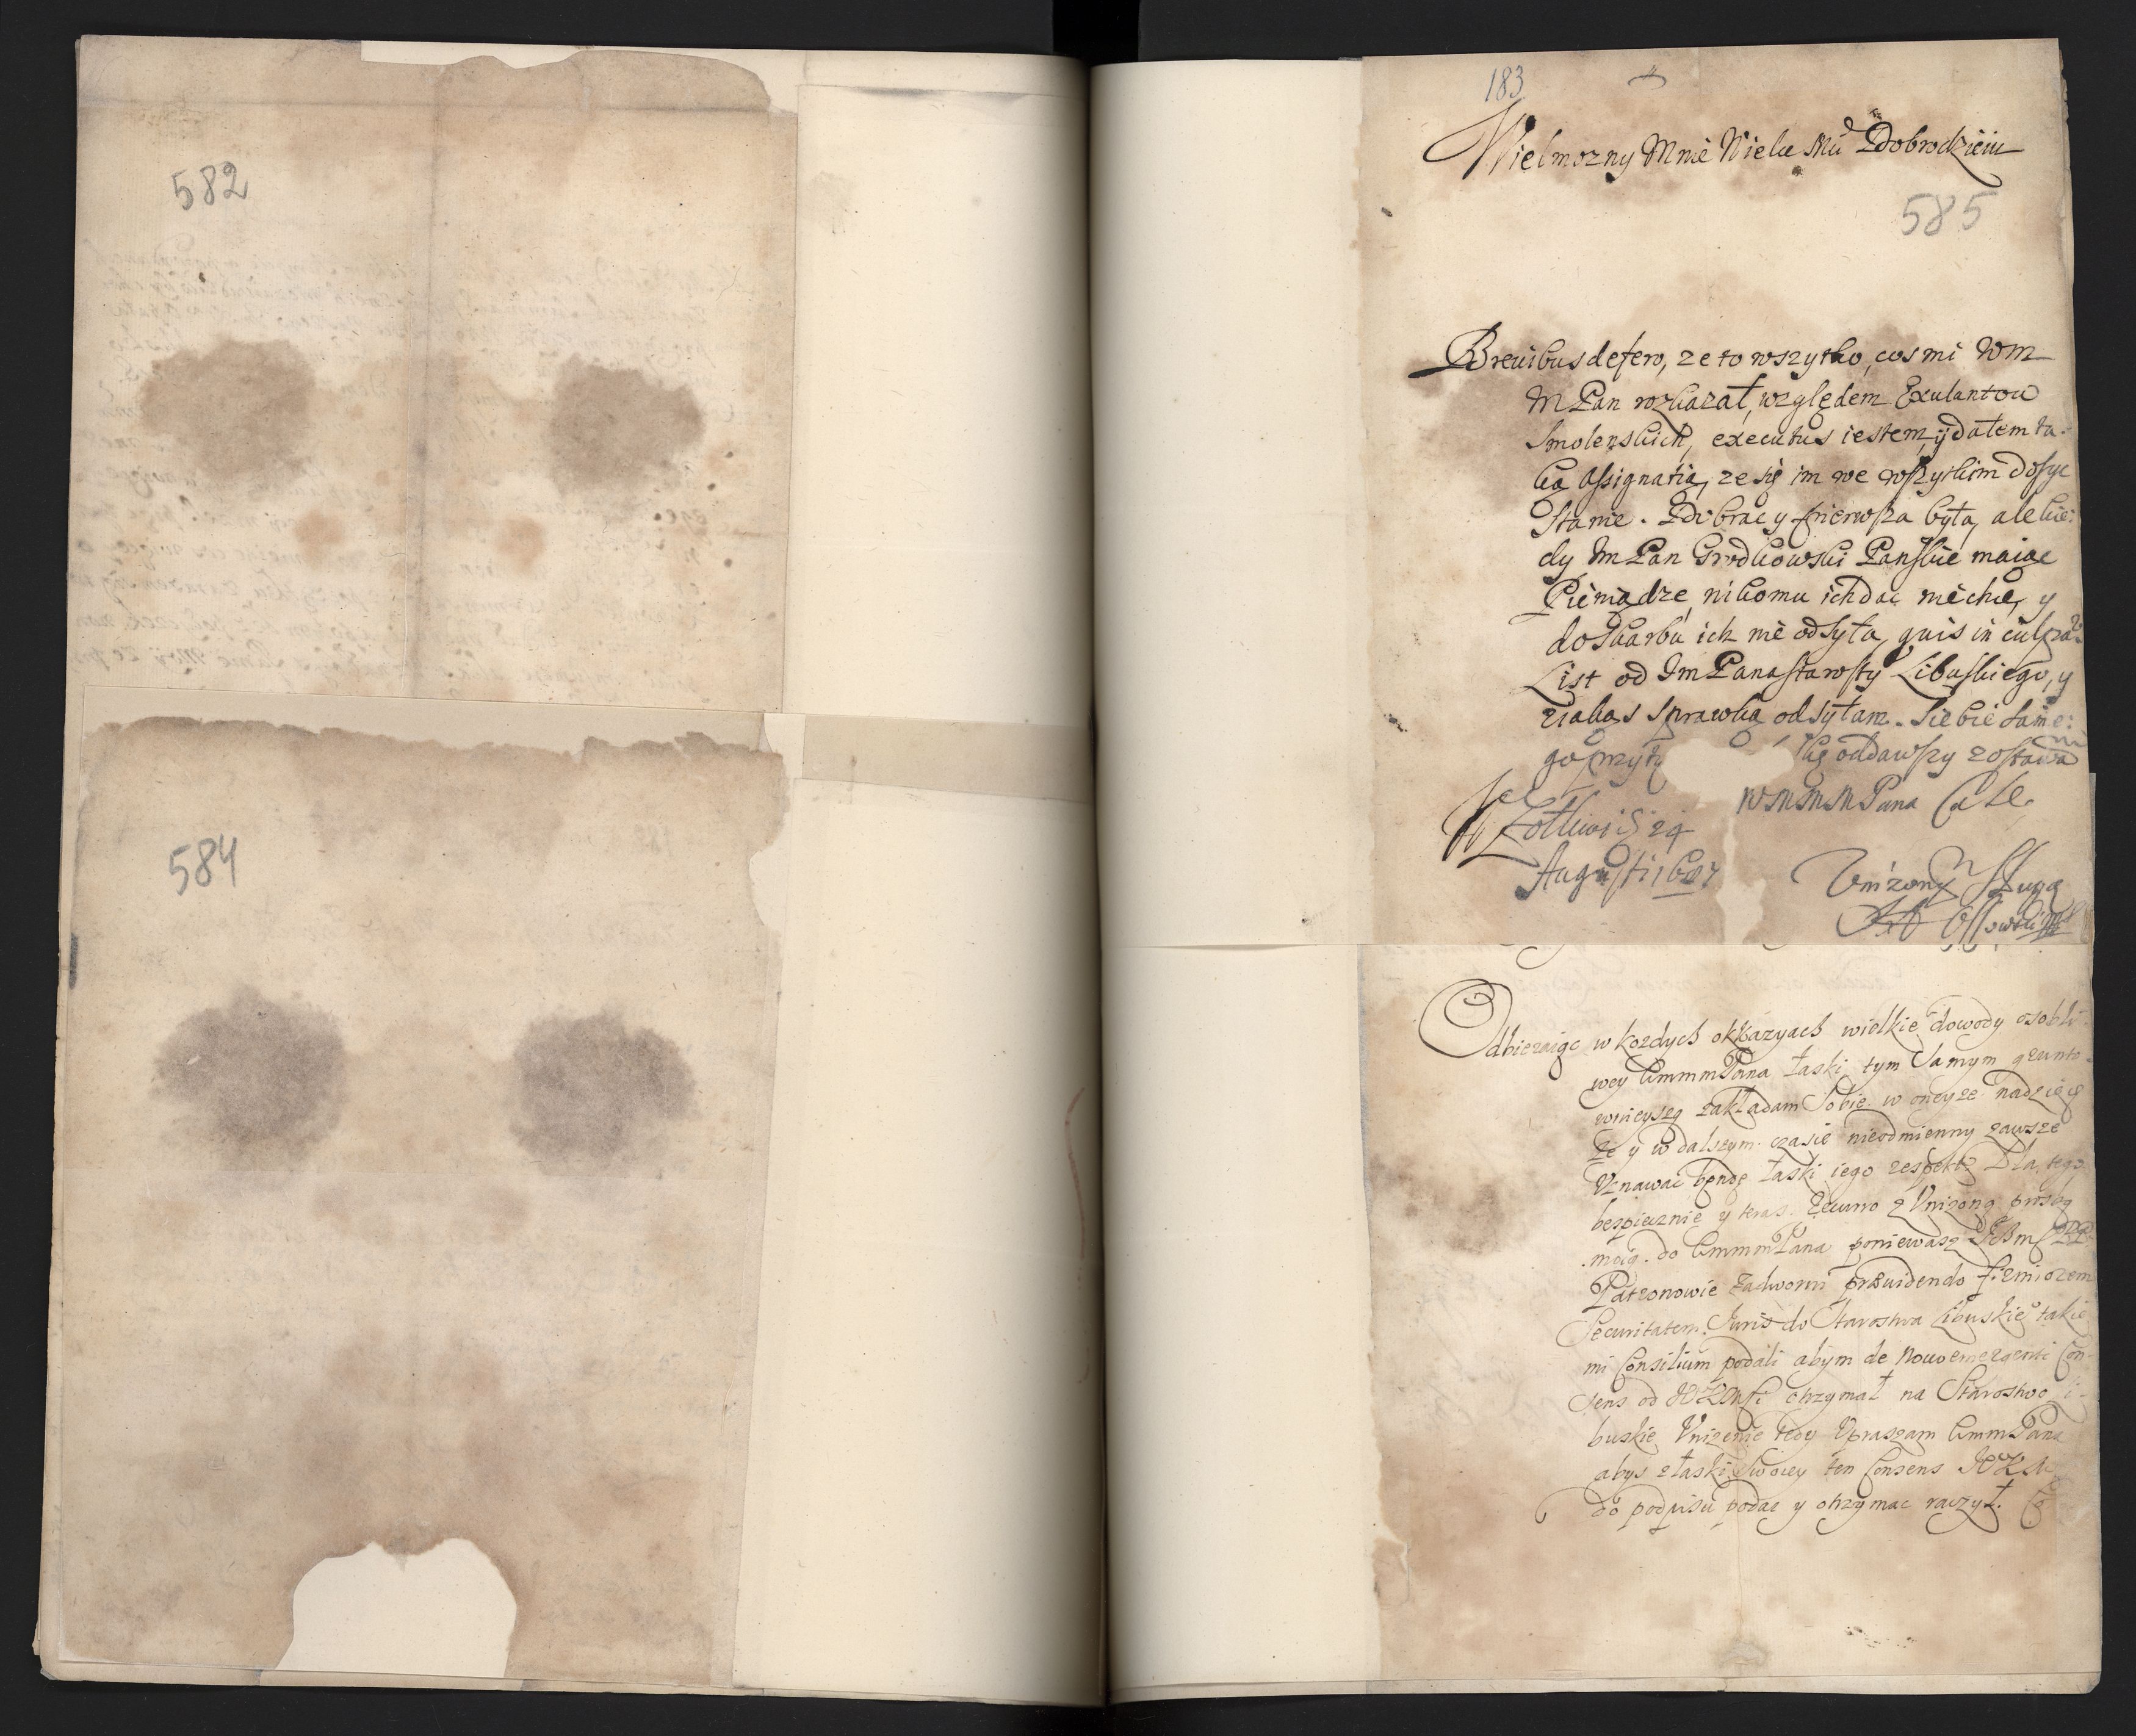 582
584
183
Wielmozny Mnie Wielce Mći Dobrodzieiu
585
Brevibus defero, ze to wszytko, cos mi WM
MPan rozkazał, względem Exulantow
Smolenskich, executus iestem, ÿ dałem ta-
ką Assignatią, ze się im we wszytkim dosyc
stanie. Dobrac y pierwsza była, ale kie:
dy Im Pan Grodkowski Panskie maiąc
Pieniądze, nikomu ich dac niechce, y
do Skarbu ich nie odsyła, quis in culpa
List od Im Pana starosty Libuskiego, y
z iakąs sprawką odsyłam. Siebie same:
go przyty oddawszy zostawam
WMMMPana Cale
W Zołkwi 24
Augusti
Vnizony Sługa
Odbieraiąc w kozdych okkazyach wielkie dowody osobli-
wey WmmmPana łaski tym samym grunto-
wnieyszą zakładam sobie w oneyze nadzieię
ze y w dalszym czasie nieodmienny zawsze
Vznawac będę łaski iego respekt Dla tego
bezpiecznie y teraz z Vnizoną prosbą
moią do WmmmPana poniewasz PP
Patronowie Zadworni præuidendo firmiorem
Securitatem Juris do Starostwa Libuskiego takie
mi Consilium podali abym de Nouo emergenti Con-
sens od JKMsci otrzymał na Starostwo Li-
buskie Vnizenie tedy Vpraszam WmmPana
abys z łaski swoiey ten Consens JKM
do podpisu podac y otrzymac raczył.